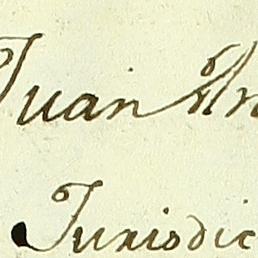 Juan An
Jurisdic